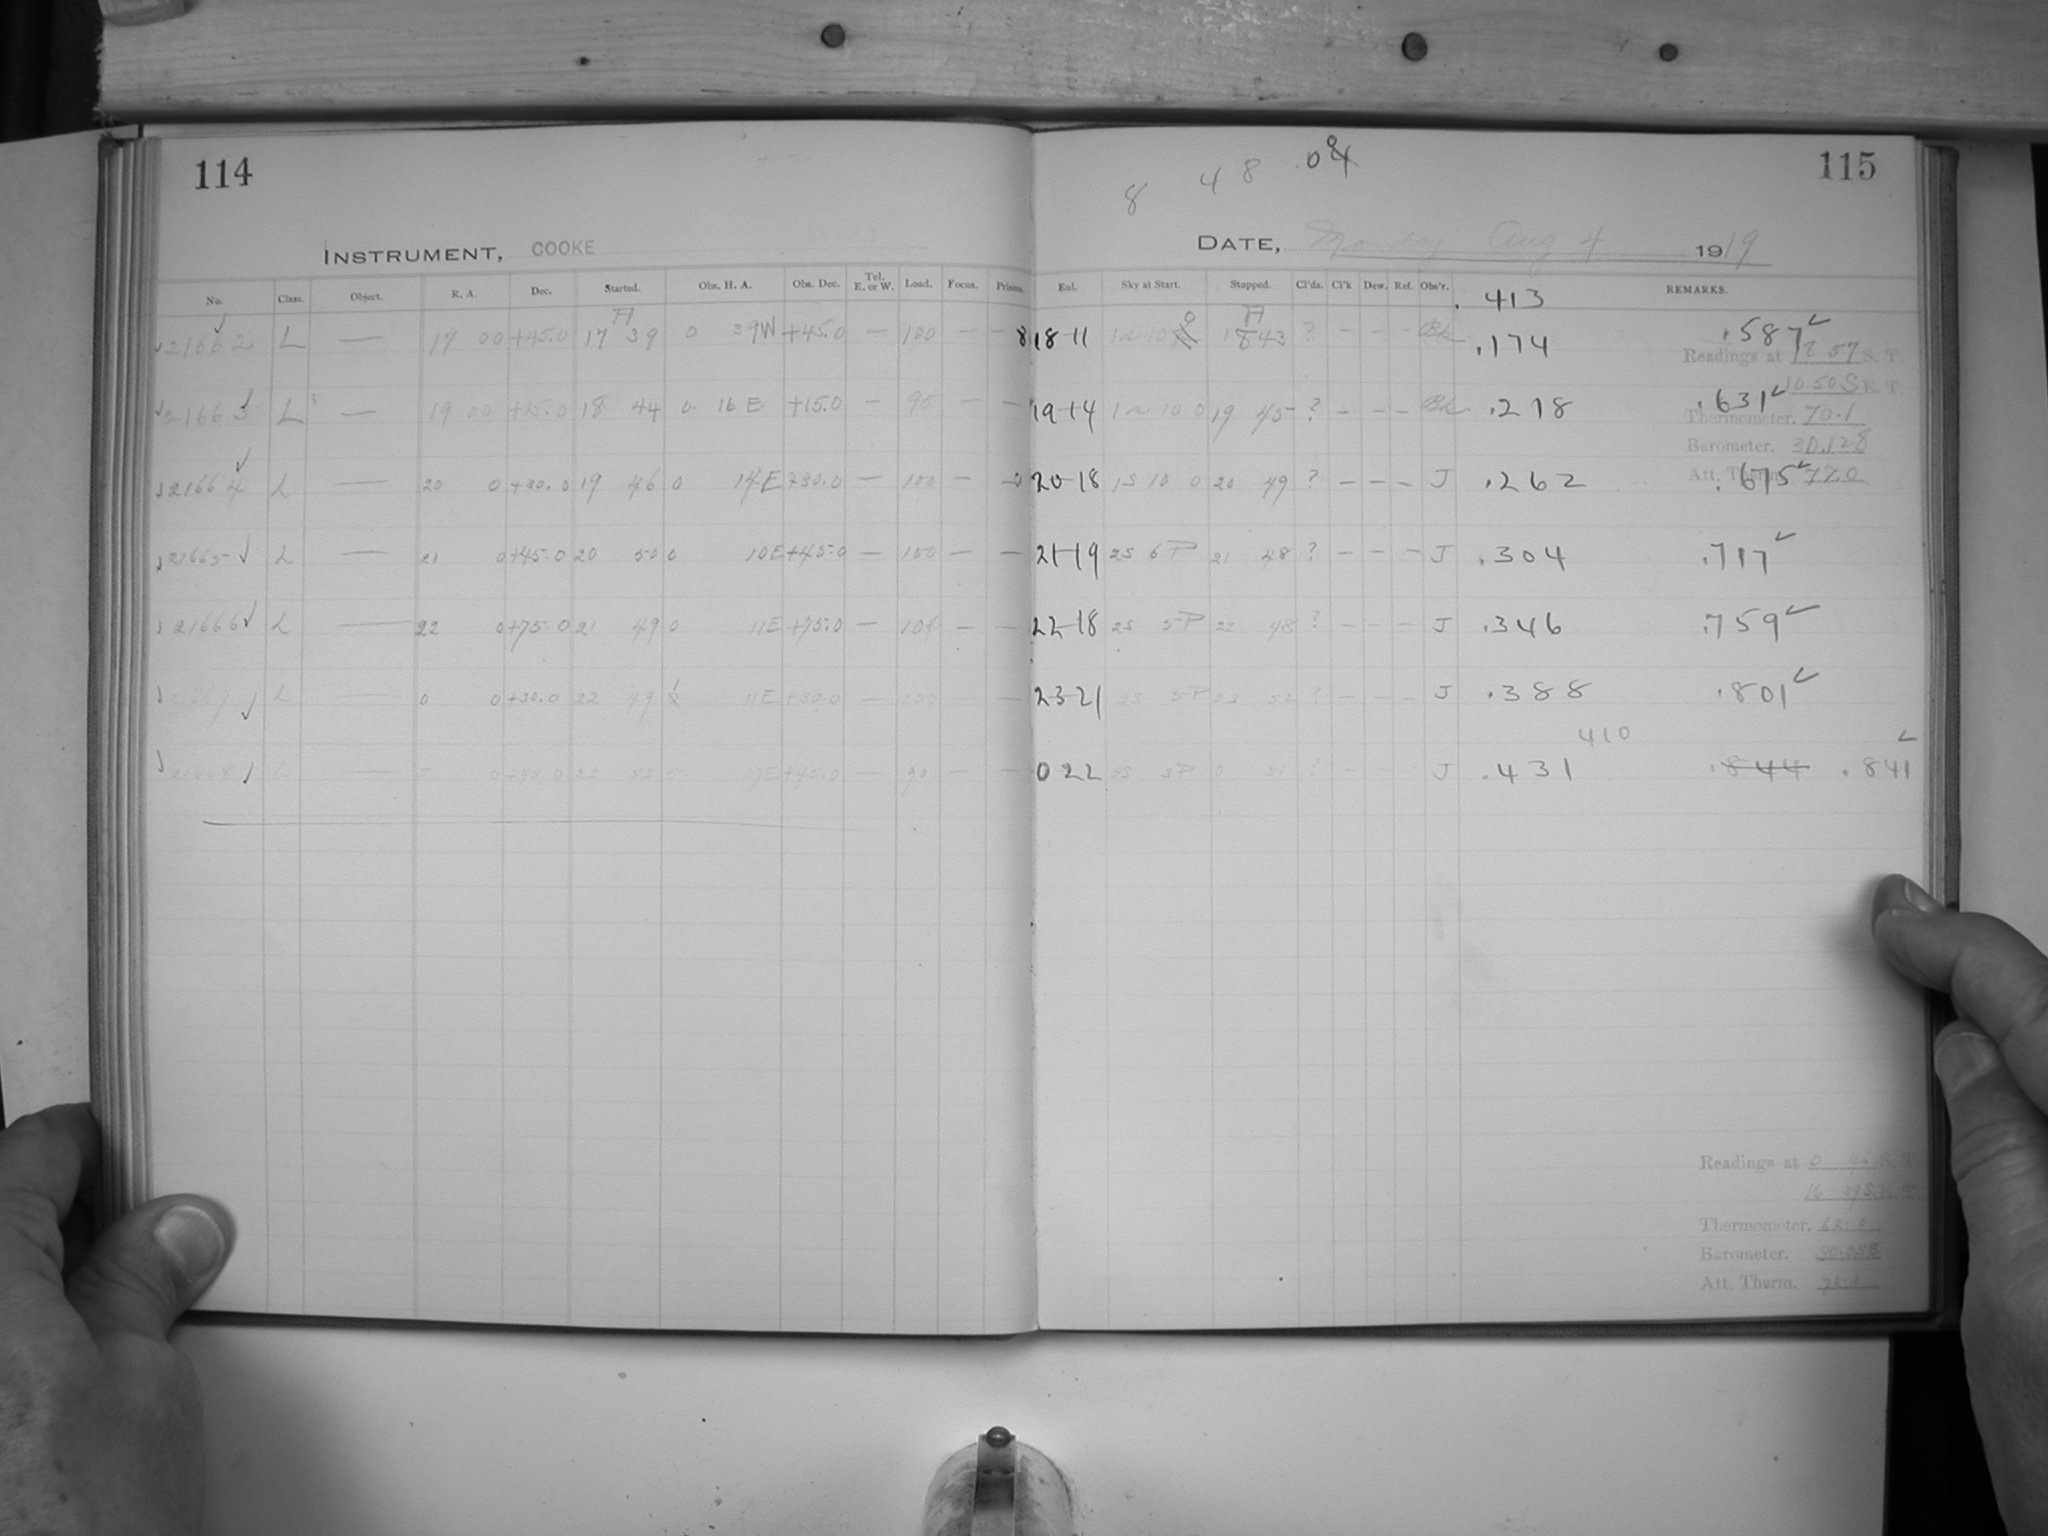 114
INSTRUMENT, COOKE
No. Class. Object. R. A. Dec. Started. Obs. H. A. Obs. Dec. Tel. E. or W. Load. Focus. Prisms.
21662 L — 17 00 +45.0 17 39 0 39W +45.0 — 100 — —
21663 L — 19 00 +15.0 18 44 0 16E +15.0 — 95 — —
21664 L — 20 0 +30.0 19 46 0 14E +30.0 — 100 — —
21665 L — 21 0 +45.0 20 50 0 10E +45.0 — 100 — —
21666 L — 22 0 +75.0 21 49 0 11E +75.0 — 104 — —
L — 0 0 +30.0 22 49 11E +30.0 — 100 — —
L — 0 +45.0 +45.0 — 90 — —
115
8 48 .04
DATE, Monday Aug 4 1919
Eol. Sky at Start. Stopped. Cl'ds. Cl'k Dew. Ref. Obs'r. .413 REMARKS.
18-11 1843 ? — — — Bk .174 .587
Readings at 18 57 S. T.
10 50 S E. T.
19-14 1 ~ 10 0 19 45 ? — — — Bk. .218 .631
Thermometer. 70.1
Barometer. 30.128
20-18 1S 10 0 20 49 ? — — — J .262 .675
Att. Therm. 77.0
21-19 2S 6 P 21 48 ? — — — J .304 .717
22-18 2S 5P 22 48 ? — — — J .346 .759
23-21 2S 5P 23 52 ? — — — J .388 .801
410
0 22 2S 0 51 ? — — — J .431 .844 .841
Readings at 0 S. T.
16 39 S.E. T.
Thermometer.
Barometer. 30.058
Att. Therm.